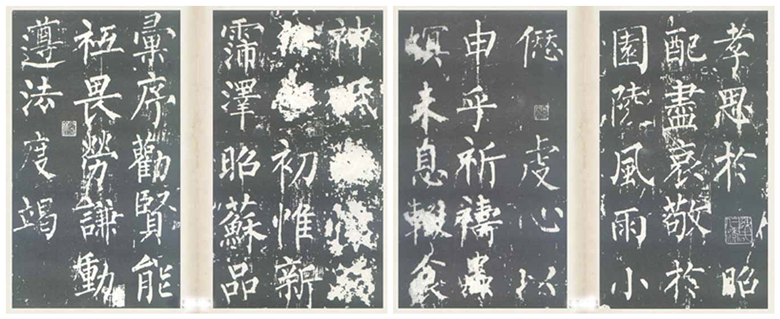 孝思於昭
配盡哀敬於
園陵風雨小
愆虔心以
申乎祈禱
螟未息輟食
神祇
初惟新
霈澤昭蘇品
彙序勸賢能
祗畏勞謙動
遵法度竭